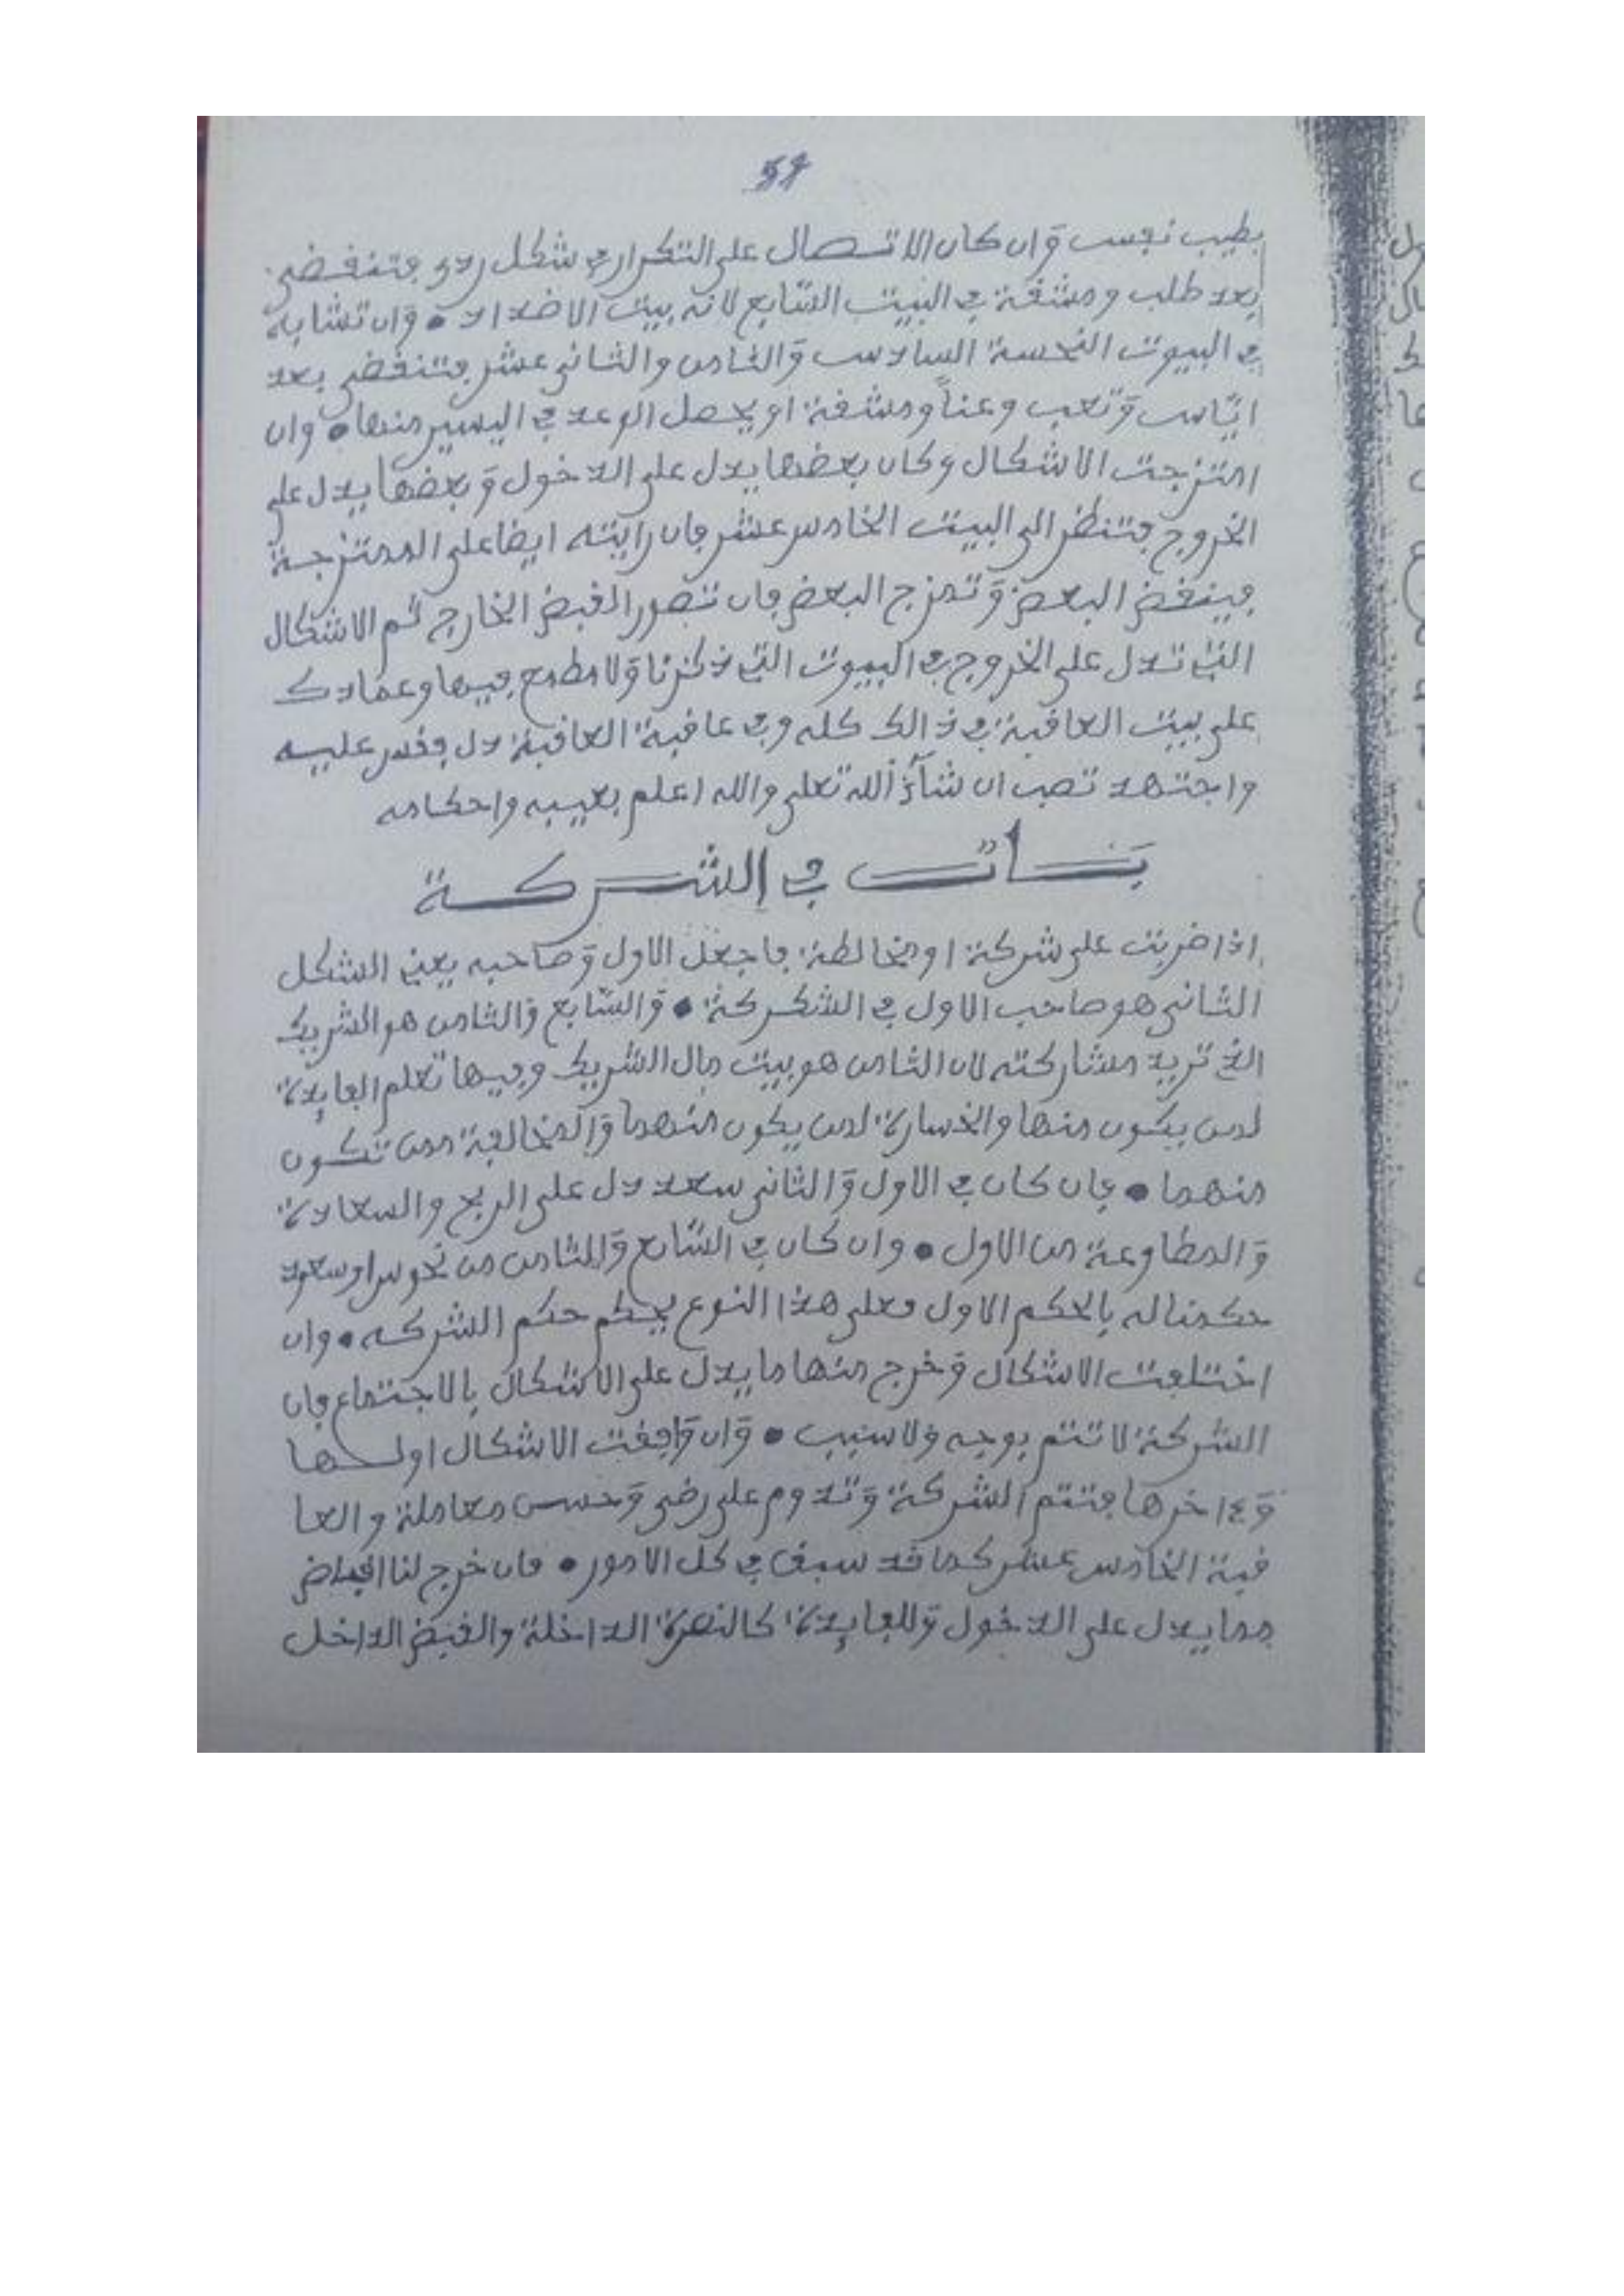 59
بطيب نفس وان كان الاتصال على التكرار في شكل ردى فتنقضى
بعد طلب ومشقة في البيت السابع لانه بيت الاضداد • وان تشابه
في البيوت النحسة السادس والثامن والثانى عشر فتنقضى بعد
اياس وتعب وعناً ومشقة او يحصل الوعد في اليسير منها • وان
امتزجت الاشكال وكان بعضها يدل على الدخول وبعضها يدل على
الخروج فتنظر الى البيت الخامس عشر فان رايته ايضا على الممتزجة
فينقض البعض وتمزج البعض فان تصور القبض الخارج ثم الاشكال
التي تدل على الخروج في البيوت التي ذكرنا ولا مطمع فيها وعمادك
على بيت العاقبة في ذالك كله وفي عاقبة العاقبة دل فقس عليه
واجتهد تصب ان شآء الله تعلى والله اعلم بغيبه واحكامه
بــاب في الشركة
اذا ضربت على شركة او مخالطة فاجعل الاول وصاحبه يعني الشكل
الثانى هو صاحب الاول في الشركة • والسابع والثامن هو الشريك
الذي تريد مشاركته لان الثامن هو بيت مال الشريك وفيها تعلم الفايدة
لمن يكون منها والخسارة لمن يكون منهما والمخالفة ممن تكون
منهما • فان كان في الاول والثانى سعد دل على الربح والسعادة
والمطاوعة من الاول • وان كان في السابع والثامن من نحوس او سعود
حكمنا له بالحكم الاول فعلى هذا النوع يحكم حكم الشركه • وان
اختلفت الاشكال وخرج منها ما يدل على الاشكال بالاجتماع فان
الشركة لا تتم بوجه ولا سبب • وان وافقت الاشكال اولها
وءاخرها فتتم الشركة وتدوم على رضى وحسن معاملة والعا
قبة الخامس عشر كما قد سبق في كل الامور • فان خرج لنا
مما يدل على الدخول وللفايدة كالنصرة الداخلة والقبض الداخل